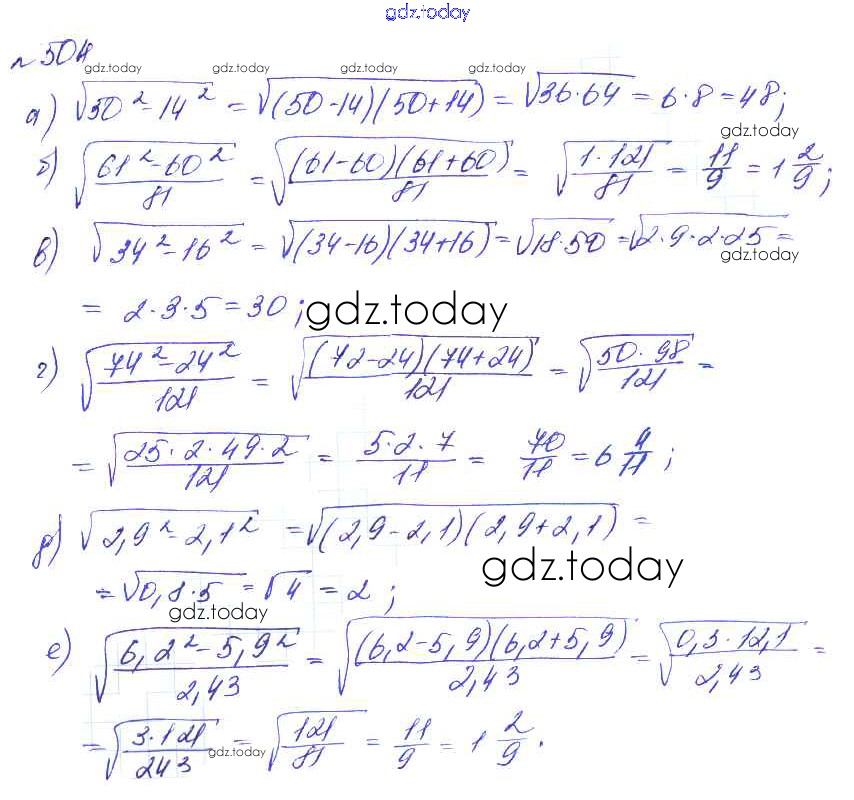 gdz.today
№ 504
gdz.today gdz.today gdz.today gdz.today
а) √(50² - 14²) = √((50 - 14)(50 + 14)) = √(36 · 64) = 6 · 8 = 48;
gdz.today
б) √((61² - 60²)/81) = √((61 - 60)(61 + 60)/81) = √(1 · 121/81) = 11/9 = 1 2/9;
в) √(34² - 16²) = √((34 - 16)(34 + 16)) = √(18 · 50) = √(2 · 9 · 2 · 25) =
gdz.today
= 2 · 3 · 5 = 30; gdz.today
г) √((74² - 24²)/121) = √((72 - 24)(74 + 24)/121) = √(50 · 98/121) =
= √(25 · 2 · 49 · 2/121) = 5 · 2 · 7/11 = 70/11 = 6 4/11;
д) √(2,9² - 2,1²) = √((2,9 - 2,1)(2,9 + 2,1)) =
gdz.today
= √(0,8 · 5) = √4 = 2;
gdz.today
е) √((6,2² - 5,9²)/2,43) = √((6,2 - 5,9)(6,2 + 5,9)/2,43) = √(0,3 · 12,1/2,43) =
= √(3 · 121/243) = √(121/81) = 11/9 = 1 2/9.
gdz.today gdz.today